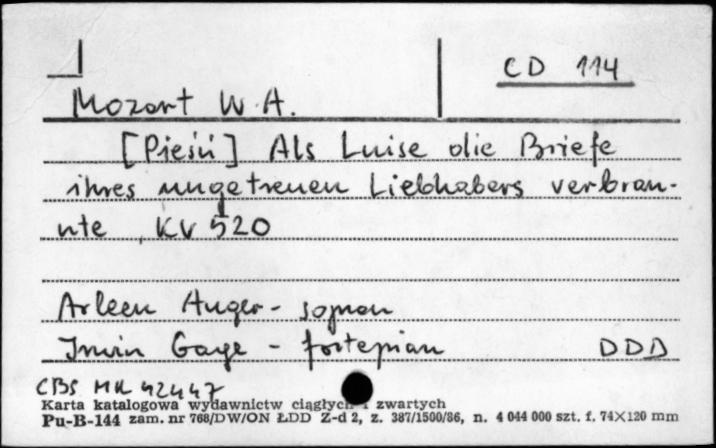 CD 114
Mozart W. A.
[Pieśń] Als Luise die Briefe
ihres ungetreuen Liebhabers verbran-
nte, KV 520
Arleen Auger - sopran
Irwin Gage - fortepian DDD
CBS MK 42447
Karta katalogowa wydawnictw ciągłych i zwartych
Pu-B-144 zam. nr 768/DW/ON ŁDD Z-d 2, z. 387/1500/86, n. 4 044 000 szt. f. 74×120 mm